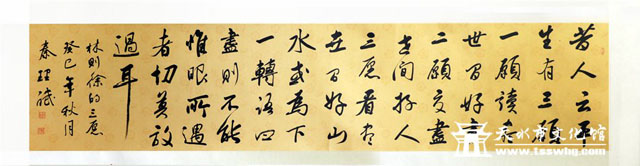 昔人云平
生有三願
一願讀盡
世間好書
二願交盡
世間好人
三愿看盡
世間好山
水或為下
一轉語曰
盡則不能
惟眼所過
者切莫放
過耳
林則徐的三愿
癸巳年秋月
秦理
天水市文化馆
www.tsswhg.com